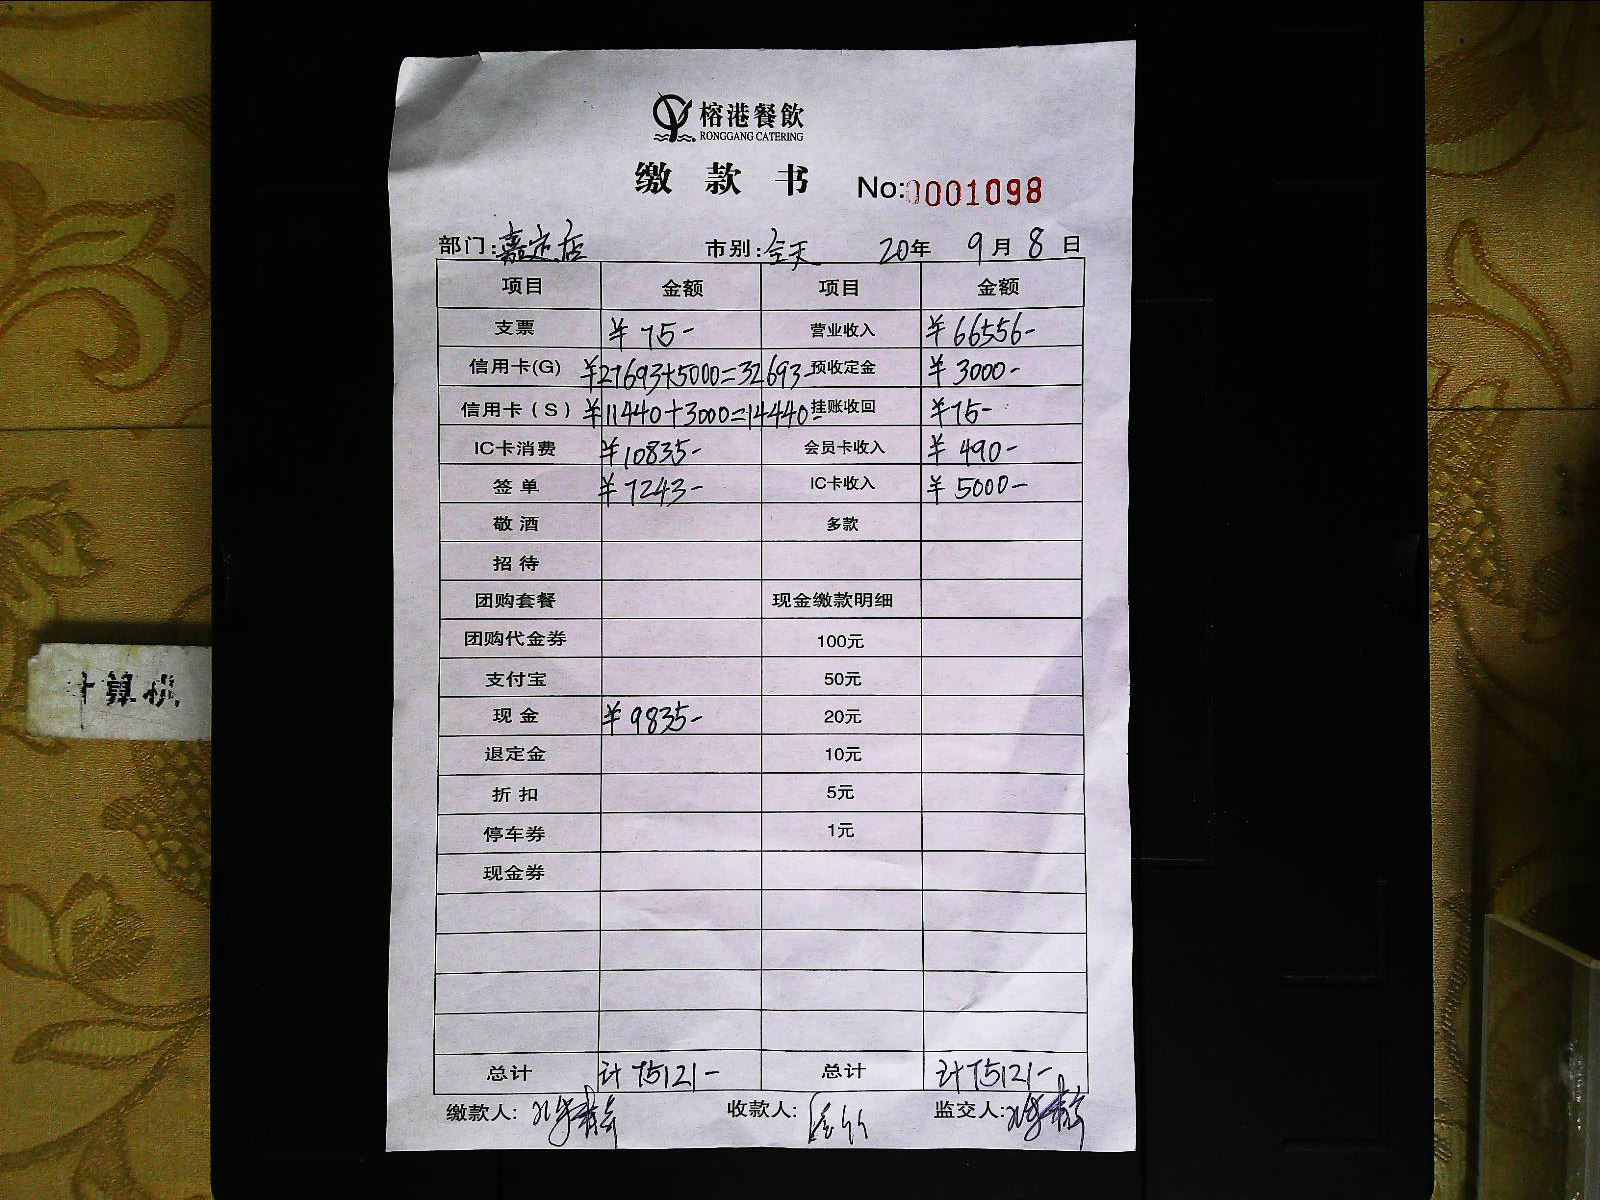 榕港餐飲
RONGGANG CATERING
缴款书 No:0001098
部门:嘉定店 市别:全天 20年 9月8日
项目 金额 项目 金额
支票 ¥75- 营业收入 ¥66556-
信用卡(G) ¥27693+5000=32693- 预收定金 ¥3000-
信用卡(S) ¥11440+3000=14440- 挂账收回 ¥75-
IC卡消费 ¥10835- 会员卡收入 ¥490-
签单 ¥7243- IC卡收入 ¥5000-
敬酒 多款
招待
团购套餐 现金缴款明细
团购代金券 100元
支付宝 50元
现金 ¥9835- 20元
退定金 10元
折扣 5元
停车券 1元
现金券
总计 计75121- 总计 计75121-
缴款人: 收款人: 监交人:
计算机